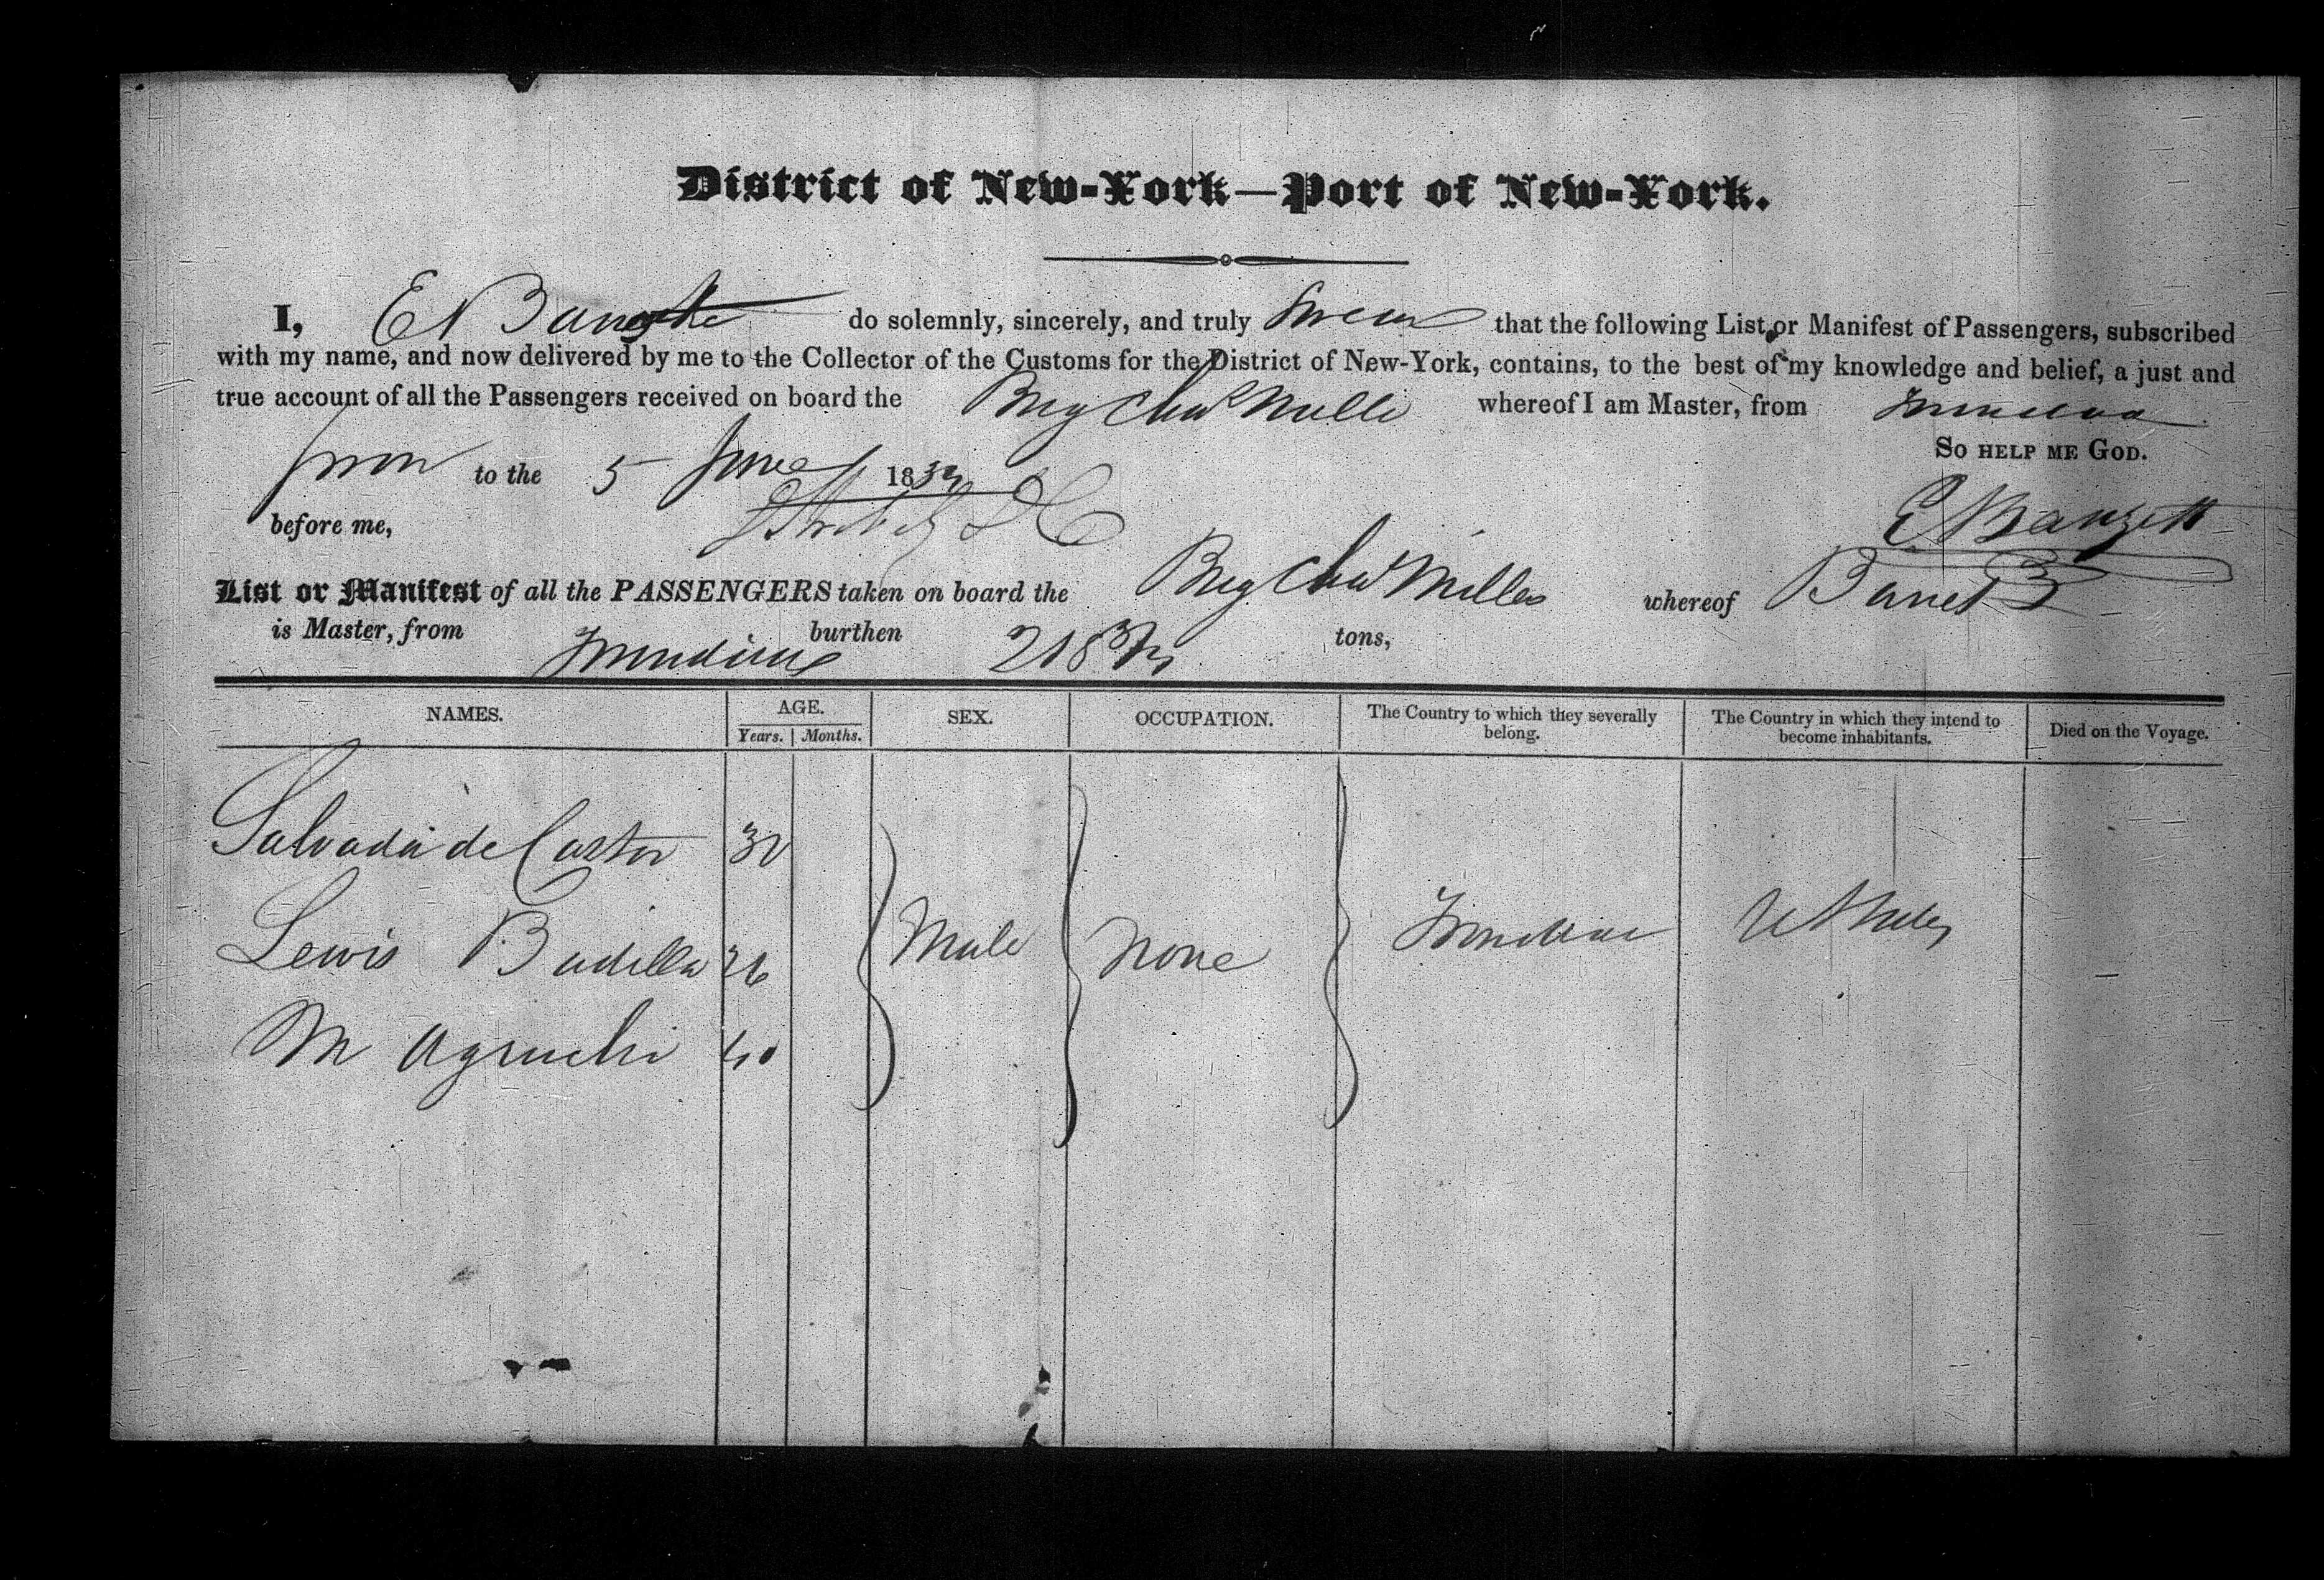 District of New-York—Port of New-York.
I, E do solemnly, sincerely, and truly Swear that the following List or Manifest of Passengers, subscribed
with my name, and now delivered by me to the Collector of the Customs for the District of New-York, contains, to the best of my knowledge and belief, a just and
true account of all the Passengers received on board the Brig Chas whereof I am Master, from
So HELP ME GOD.
to the 5 June 183
before me,
List or Manifest of all the PASSENGERS taken on board the Brig Chas Miller whereof
is Master, from burthen 218 tons,
NAMES. AGE. SEX. OCCUPATION. The Country to which they severally belong. The Country in which they intend to become inhabitants. Died on the Voyage.
Years. Months.
Salvador de Castro 30
Lewis Badilla 26 Male None U States
M 40